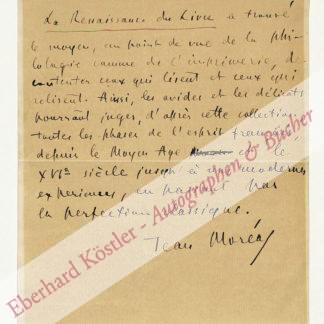 La Renaissance du Livre a trouvé
le moyen, au point de vue de la phi-
lologie comme de l'imprimerie, de
contenter ceux qui lisent et ceux qui
relisent. Ainsi, les avides et les délicats
pourront juger, d'après cette collection,
toutes les phases de l'esprit français
depuis le Moyen Age et le
XVIe siècle jusqu'à modernes
expériences, en passant par
la perfection classique.
Jean Moréas
Eberhard Köstler - Autographen & Bücher